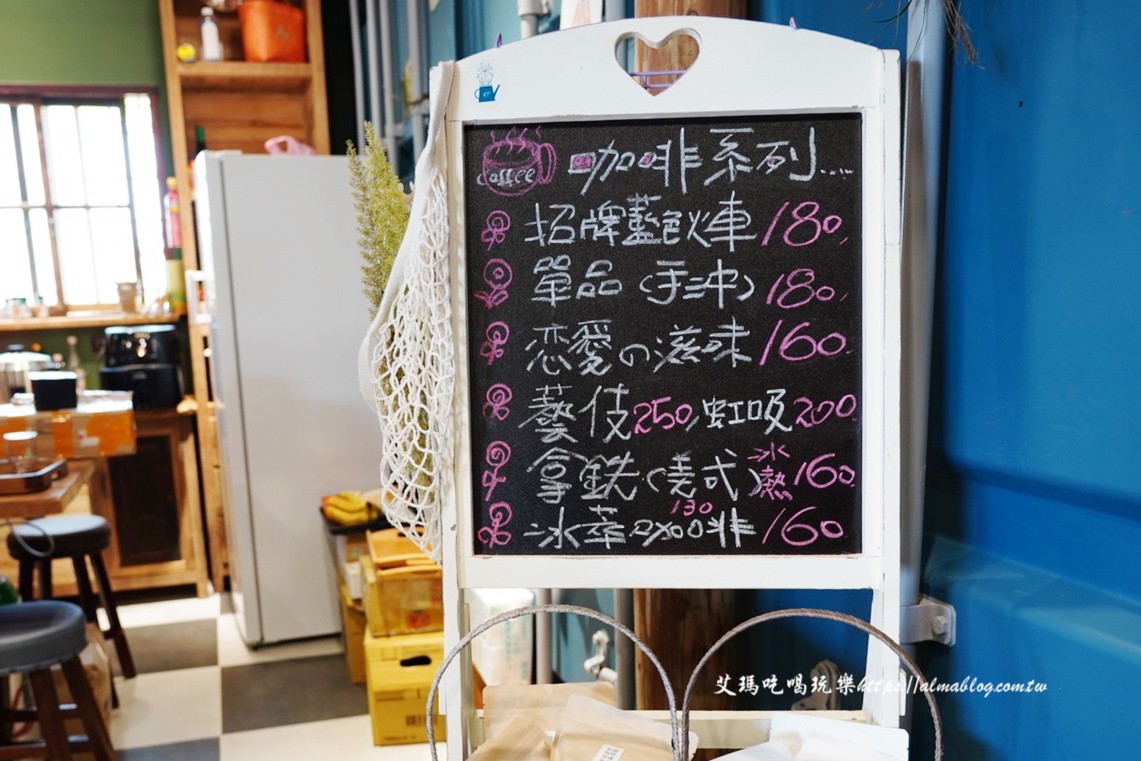 coffee 咖啡系列.....
招牌藍色火車 180
單品(手沖) 180
恋愛の滋味 160
藝伎250, 虹吸200
拿鐵(義式)冰熱160
130
冰萃 咖啡 160
艾瑪吃喝玩樂https://almablog.com.tw